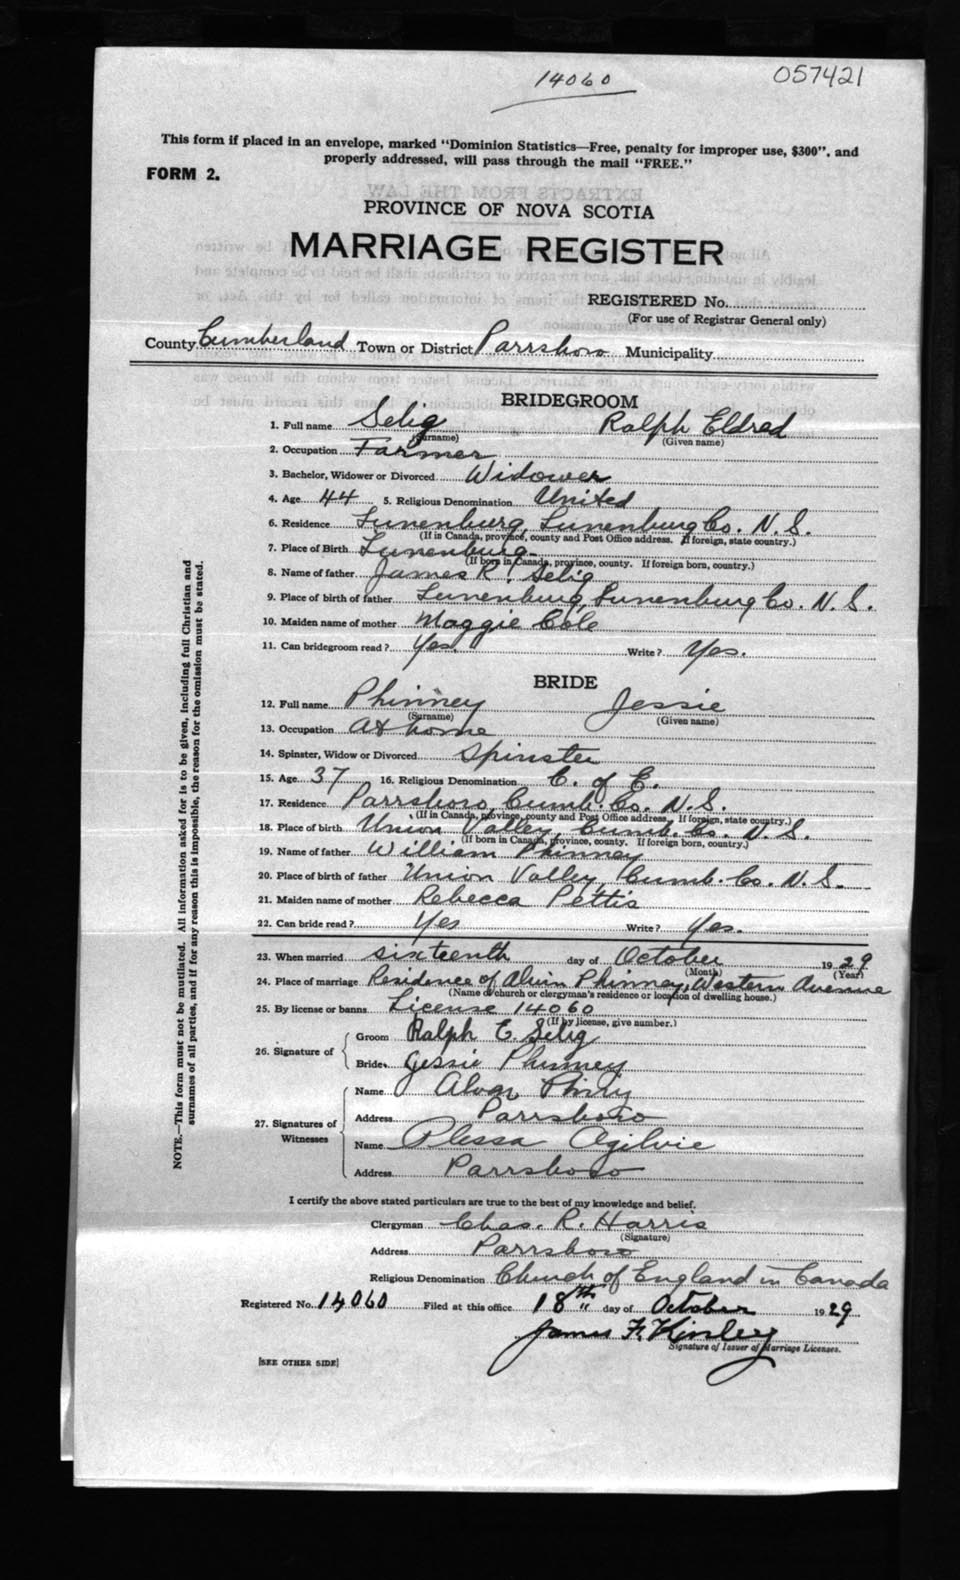 14060
057421
This form if placed in an envelope, marked "Dominion Statistics—Free, penalty for improper use, $300", and
properly addressed, will pass through the mail "FREE."
FORM 2.
PROVINCE OF NOVA SCOTIA
MARRIAGE REGISTER
REGISTERED No.
(For use of Registrar General only)
County Cumberland Town or District Parrsboro Municipality
BRIDEGROOM
1. Full name Selig Ralph Eldred
(Surname) (Given name)
2. Occupation Farmer
3. Bachelor, Widower or Divorced Widower
4. Age 44 5. Religious Denomination United
6. Residence Lunenburg, Lunenburg Co. N.S.
(If in Canada, province, county and Post Office address. If foreign, state country.)
7. Place of Birth Lunenburg
(If born in Canada, province, county. If foreign born, country.)
8. Name of father James R. Selig
9. Place of birth of father Lunenburg, Lunenburg Co. N.S.
10. Maiden name of mother Maggie Cole
11. Can bridegroom read? Yes. Write? Yes.
BRIDE
12. Full name Phinney Jessie
(Surname) (Given name)
13. Occupation at home
14. Spinster, Widow or Divorced Spinster
15. Age 37 16. Religious Denomination C. of E.
17. Residence Parrsboro, Cumb. Co. N.S.
(If in Canada, province, county and Post Office address. If foreign, state country.)
18. Place of birth Union Valley, Cumb. Co. N.S.
(If born in Canada, province, county. If foreign born, country.)
19. Name of father William Phinney
20. Place of birth of father Union Valley, Cumb. Co. N.S.
21. Maiden name of mother Rebecca Pettis
22. Can bride read? Yes Write? Yes.
23. When married sixteenth day of October 1929
(Month) (Year)
24. Place of marriage Residence of Alvin Phinney, Western Avenue
(Name of church or clergyman's residence or location of dwelling house.)
25. By license or banns License 14060
(If by license, give number.)
26. Signature of Groom Ralph E. Selig
Bride Jessie Phinney
27. Signatures of Witnesses Name Alvan
Address Parrsboro
Name Ogilvie
Address Parrsboro
I certify the above stated particulars are true to the best of my knowledge and belief.
Clergyman Chas. R. Harris
(Signature)
Address Parrsboro
Religious Denomination Church of England in Canada
Registered No. 14060 Filed at this office 18th day of October 1929
James F. Kinley
Signature of Issuer of Marriage Licenses.
[SEE OTHER SIDE]
NOTE.—This form must not be mutilated. All information asked for is to be given, including full Christian and
surnames of all parties, and if for any reason this is impossible, the reason for the omission must be stated.